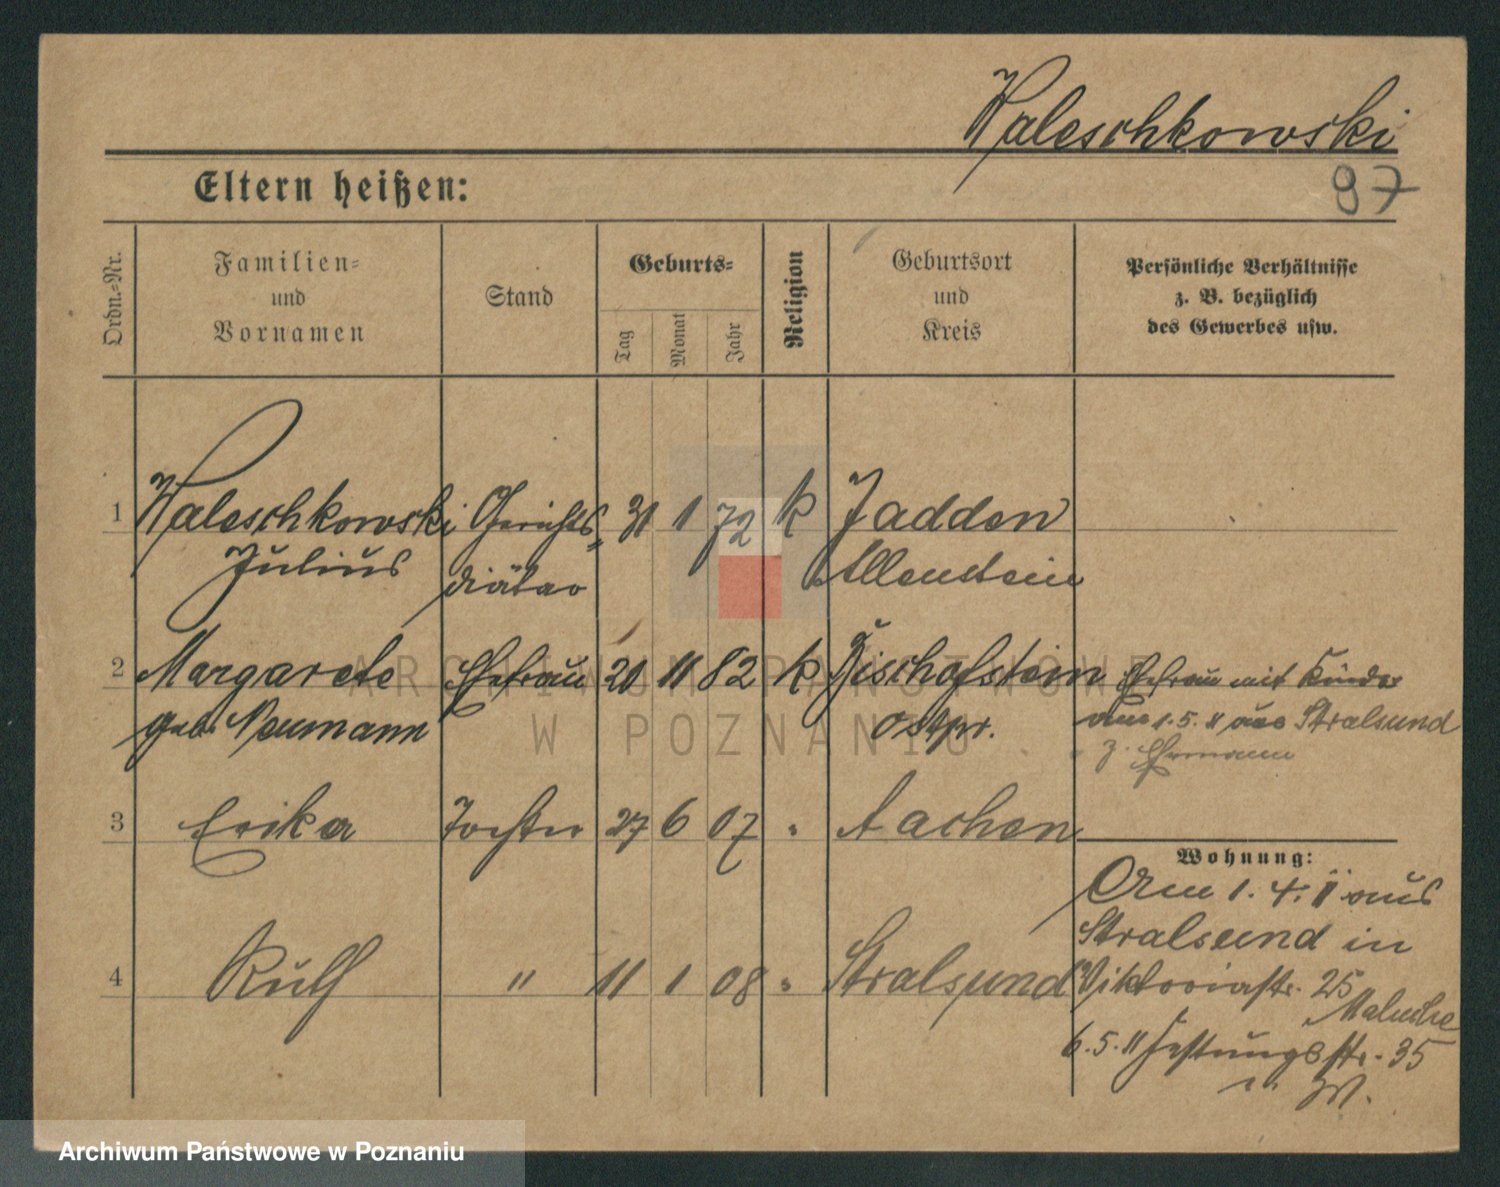 Waleschkowski
97
Eltern heißen:
Ordn.-Nr.
Familien-
und
Vornamen
Stand
Geburts-
Tag
Monat
Jahr
Religion
Geburtsort
und
Kreis
Persönliche Verhältnisse
z. B. bezüglich
des Gewerbes usw.
1 Waleschkowski Gerichts- 31 1 72 k Jadden
Julius diätar Allenstein
2 Margarete Ehefrau 20 11 82 k Bischofstein Ehefrau mit Kinder
geb. Neumann Ostpr. am 1.5.11 aus Stralsund
z. Ehemann
3 Erika Tochter 27 6 07 " Aachen
Wohnung:
Am 1.4.11 aus
Stralsund in
4 Rulf " 11 1 08 " Stralsund Viktoriastr. 25
6.5.11 Festungsstr. 35
W.
ARCHIWUM PAŃSTWOWE
W POZNANIU
Archiwum Państwowe w Poznaniu